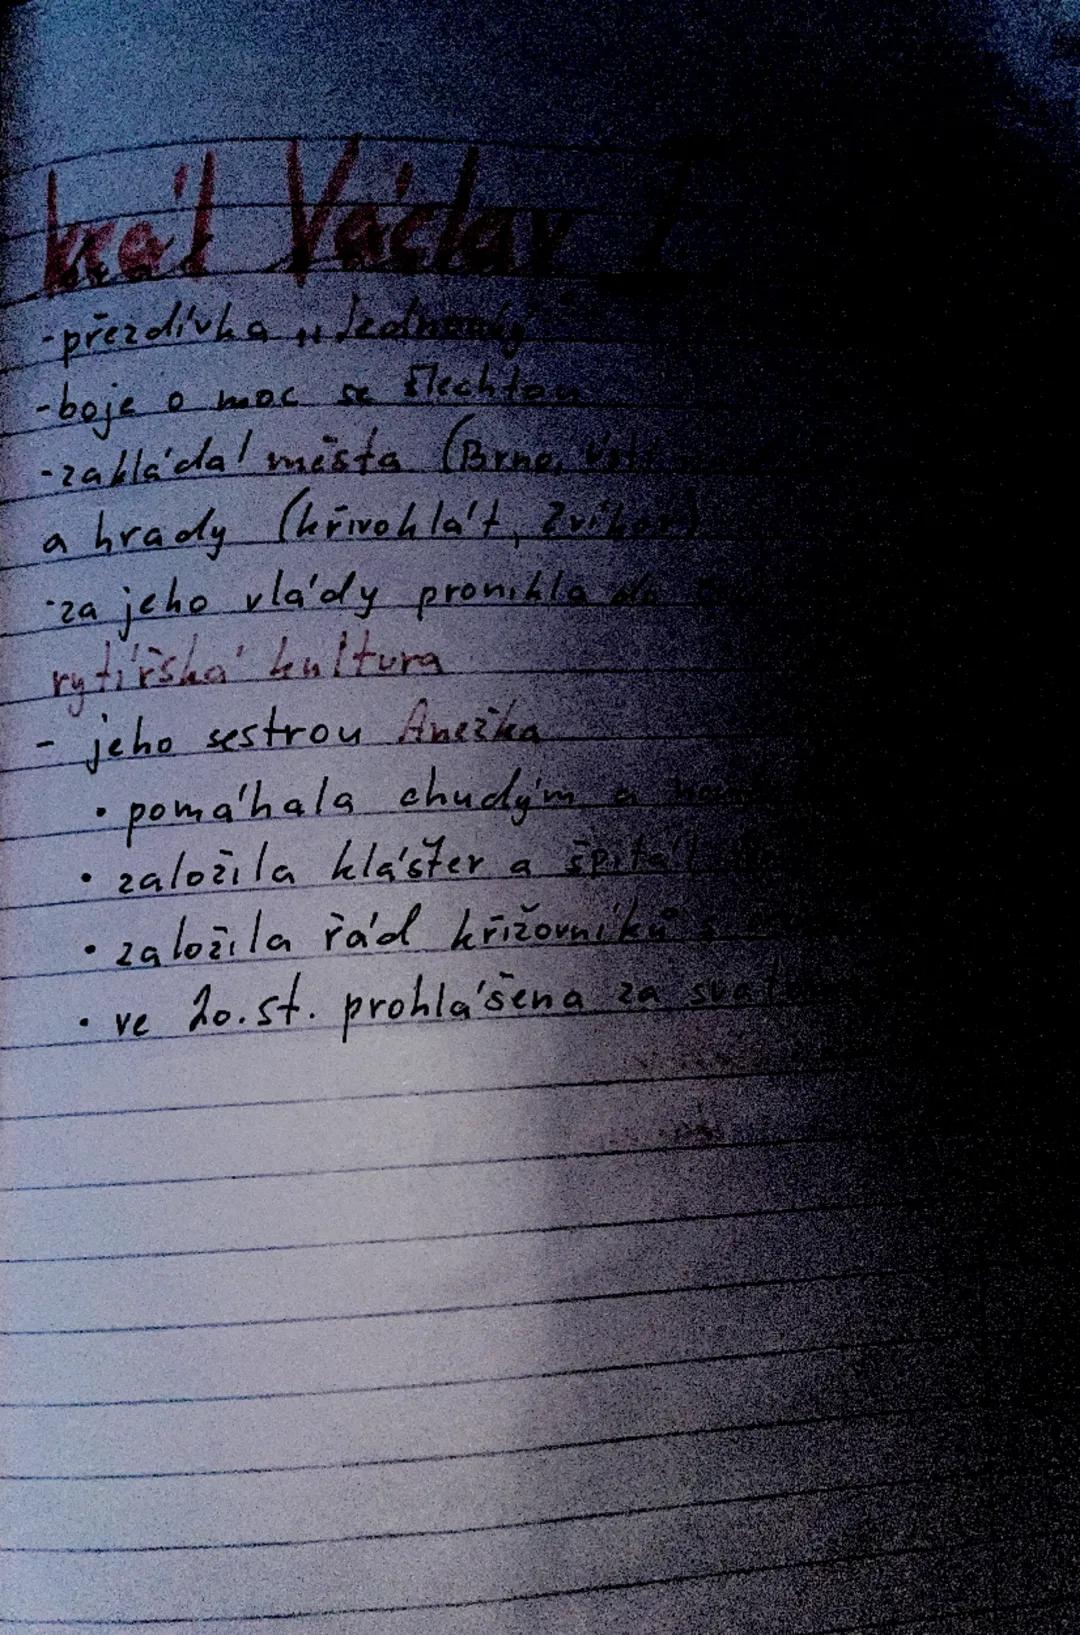 král Václav I.
-přezdívka „Jednooký"
-boje o moc se šlechtou
-zakládal města (Brno,
a hrady (křivoklát, Zvíkov)
-za jeho vlády pronikla do
rytířská kultura
- jeho sestrou Anežka
• pomáhala chudým a
• založila klášter a špitál
• založila řád křižovníků s
• ve 20.st. prohlášena za